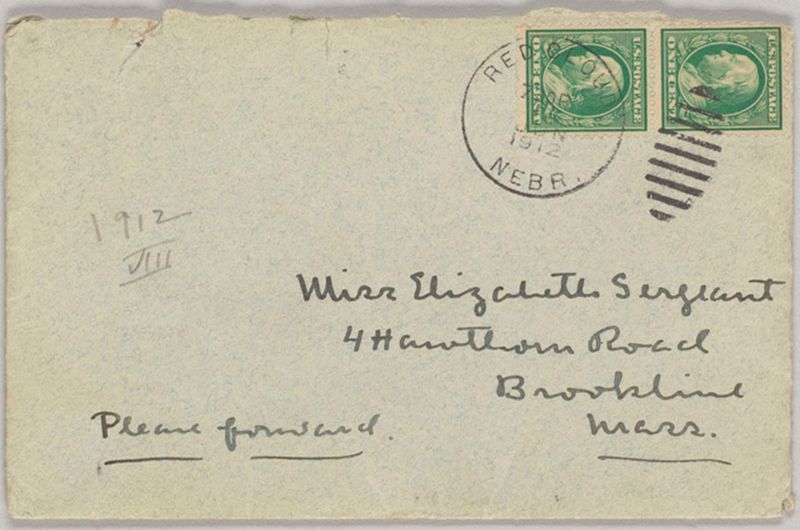 RED CLOUD
1912
NEBR.
U.S. POSTAGE
ONE CENT
U.S. POSTAGE
ONE CENT
1912
VIII
Miss Elizabeth Sergeant
4 Hawthorn Road
Brookline
Mass.
Please forward.